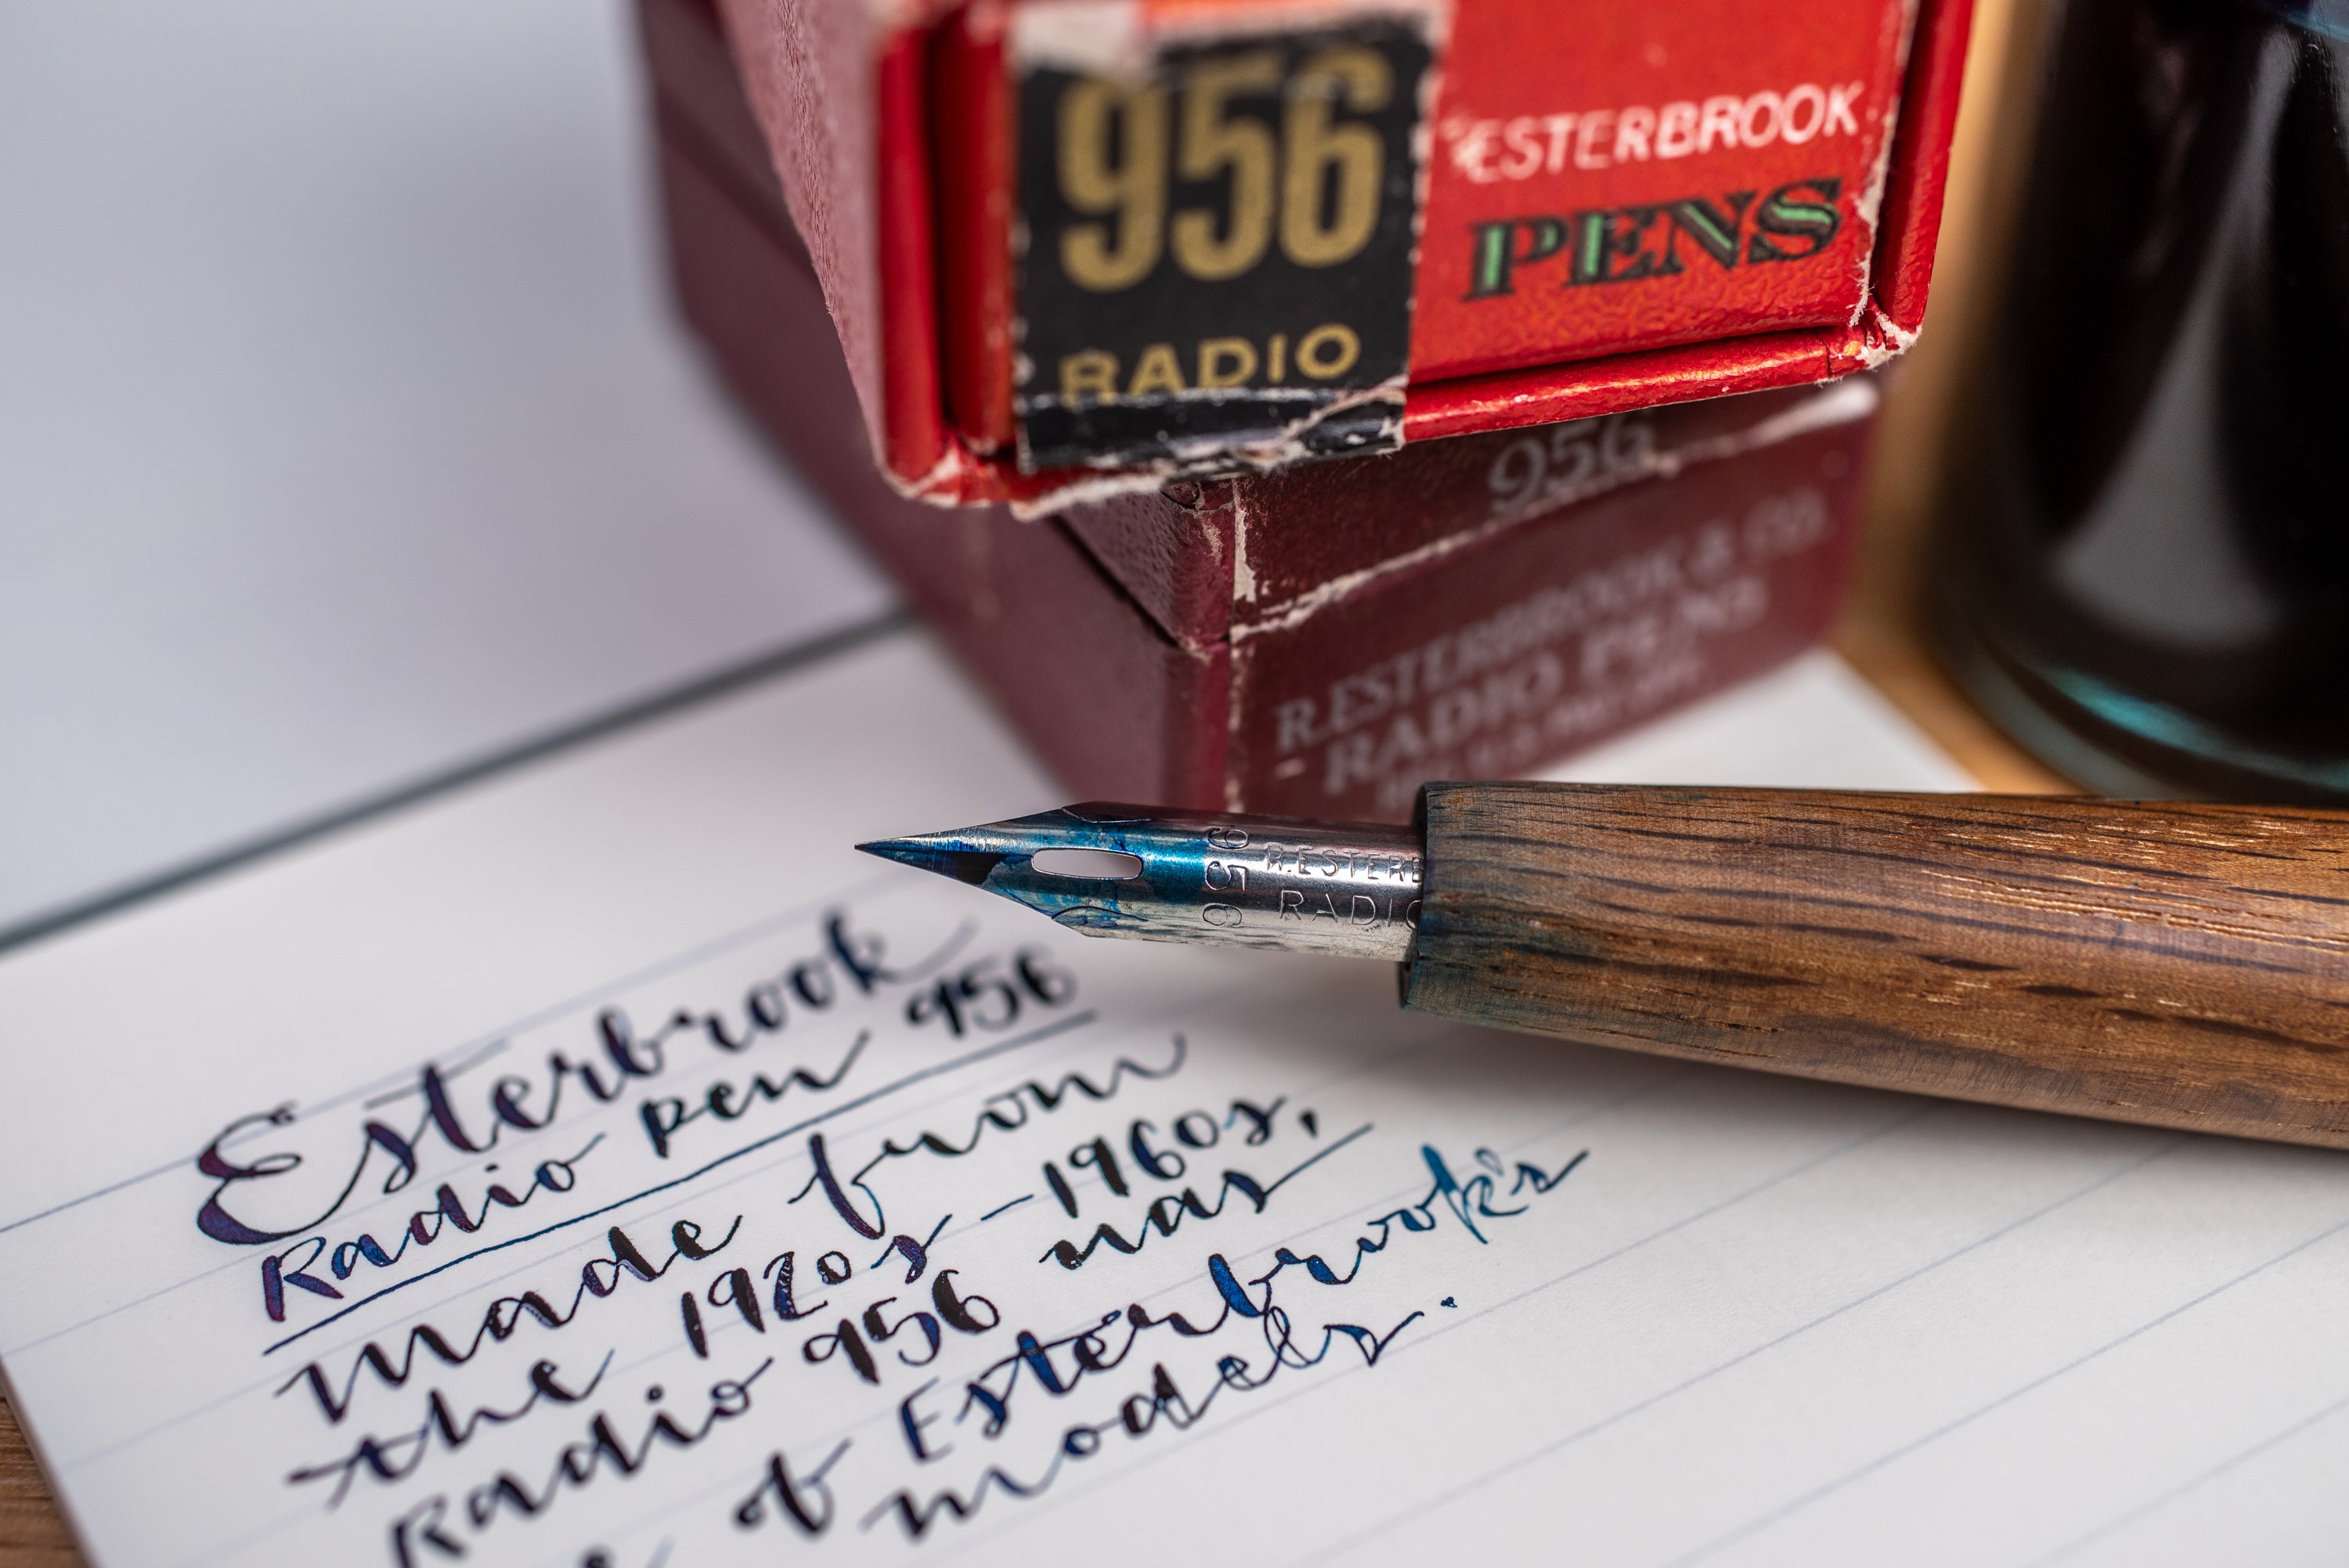 956
RADIO
ESTERBROOK
PENS
956
R.ESTERBROOK & CO.
RADIO PENS
956
R.ESTERB
RADIO
Esterbrook
Radio pen 956
made from
the 1920s-1960s,
Radio 956 was
of Esterbrook's
models.